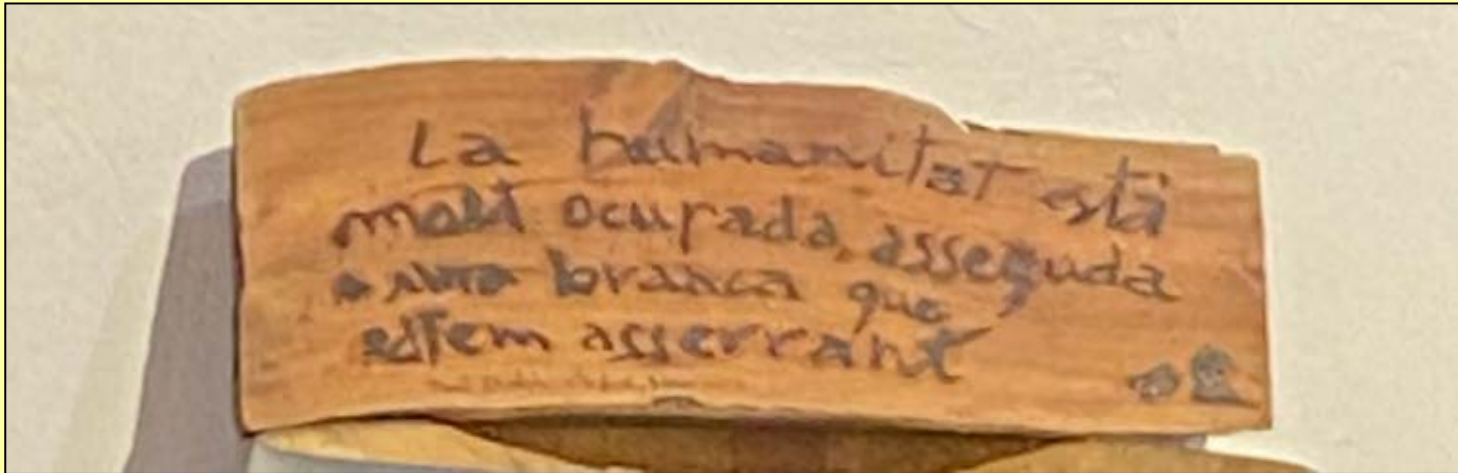 La humanitat està
molt ocupada, asseguda
a una branca que
estem asserrant